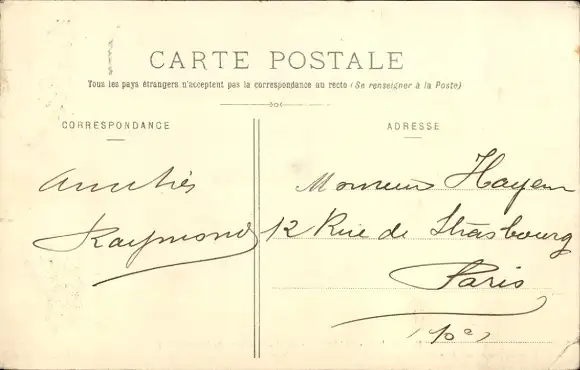 CARTE POSTALE
Tous les pays étrangers n'acceptent pas la correspondance au recto (Se renseigner à la Poste)
CORRESPONDANCE
Amitiés
Raymond
ADRESSE
Monsieur Hayem
12 Rue de Strasbourg
Paris
(10e)